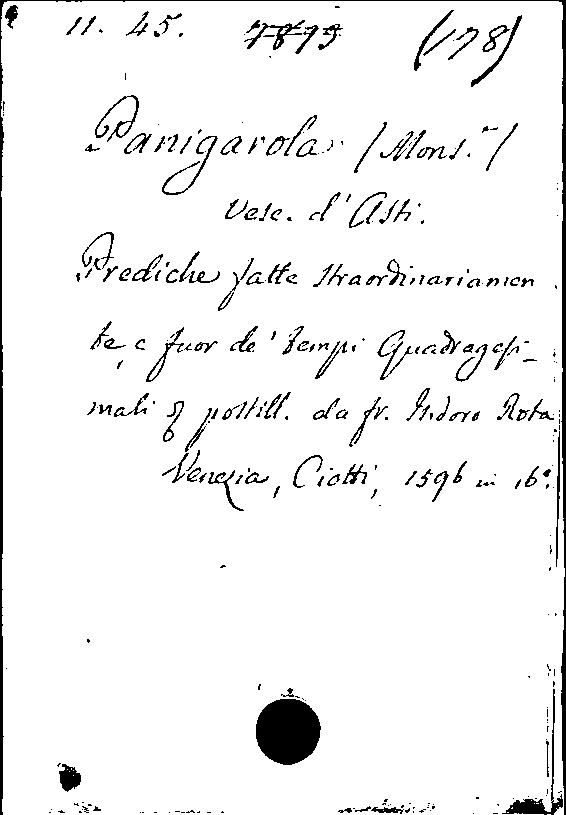 11. 45. 7873 (178)
Panigarola (Mons.r)
Vesc. d'Asti.
Prediche fatte straordinariamen
te, e fuor de' tempi Quadragesi-
mali & postill. da fr. Isidoro Rota
Venezia, Ciotti, 1596 in 16°.